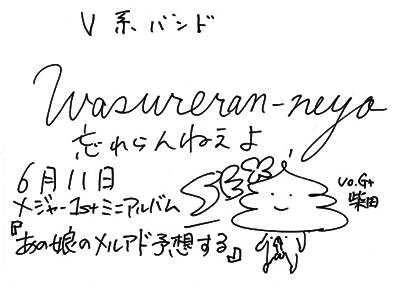 V系バンド
Wasureran-neyo
忘れらんねえよ
6月11日
メジャー1stミニアルバム
『あの娘のメルアド予想する』
Vo.Gt
柴田